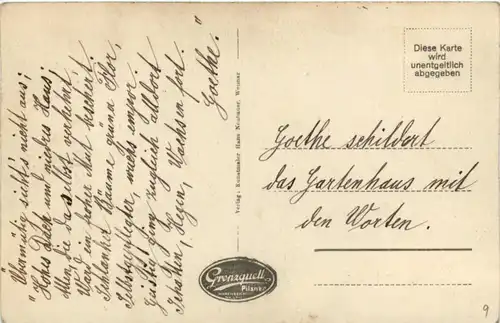 "Übermütig sieht's nicht aus;
"Hohes Dach und niedres Haus;
Allen, die daselbst verkehrt
Ward ein froher Mut beschert.
Schlanker Bäume grüner Flor,
Selbstgepflanzter, wuchs empor.
Geistig ging zugleich alldort
Schaffen, Hegen, Wachsen fort."
Goethe."
Verlag: Kunstmaler Hans Neubauer, Weimar
Diese Karte
wird
unentgeltlich
abgegeben
Goethe schildert
das Gartenhaus mit
den Worten.
Grenzquell
Pilsner
9